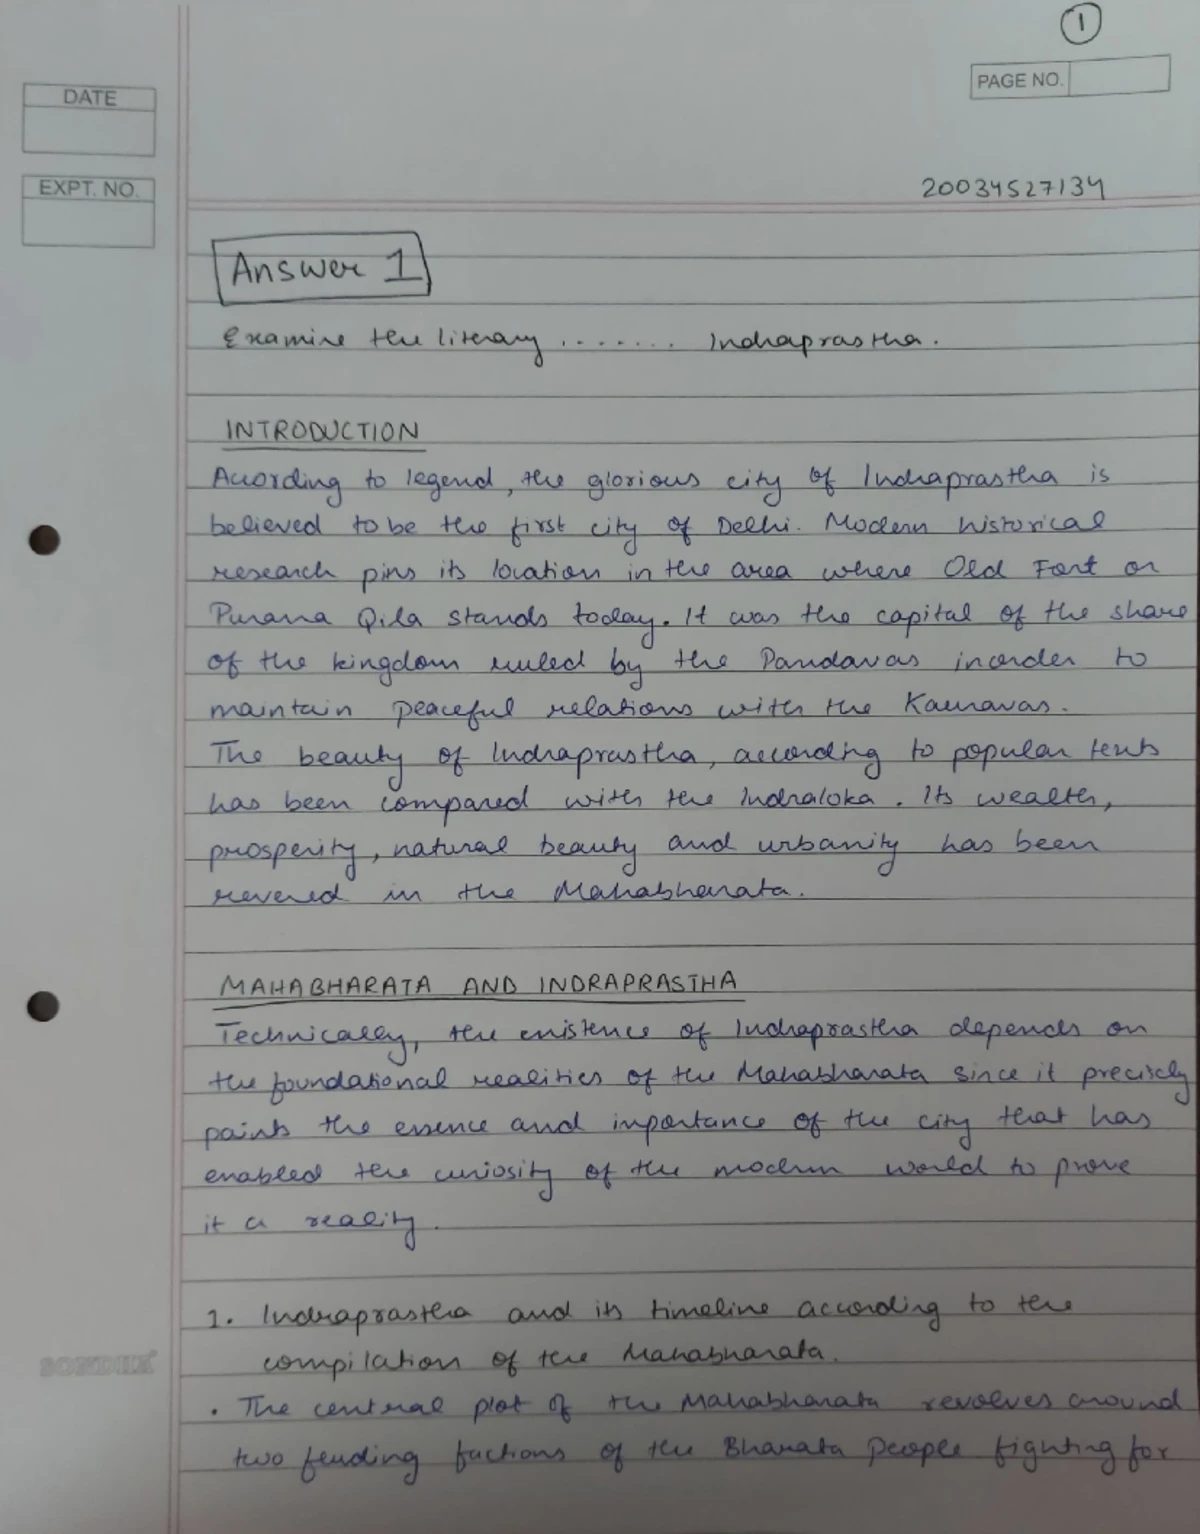 1
DATE
PAGE NO.
EXPT. NO.
20034527134
Answer 1
Examine the literary ....... Indraprastha.
INTRODUCTION
According to legend, the glorious city of Indraprastha is
believed to be the first city of Delhi. Modern historical
research pins its location in the area where Old Fort or
Purana Qila stands today. It was the capital of the share
of the kingdom ruled by the Pandavas inorder to
maintain peaceful relations with the Kauravas.
The beauty of Indraprastha, according to popular texts
has been compared with the Indraloka. Its wealth,
prosperity, natural beauty and urbanity has been
revered in the Mahabharata.
MAHABHARATA AND INDRAPRASTHA
Technically, the existence of Indraprastha depends on
the foundational realities of the Mahabharata since it precisely
paints the essence and importance of the city that has
enabled the curiosity of the modern world to prove
it a reality.
1. Indraprastha and its timeline according to the
compilation of the Mahabharata.
SONDHA
. The central plot of the Mahabharata revolves around
two feuding factions of the Bharata People fighting for